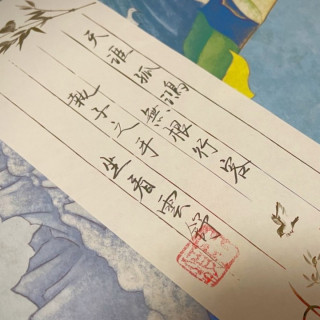 天涯孤鴻
無根行客
執子之手
坐看雲舒